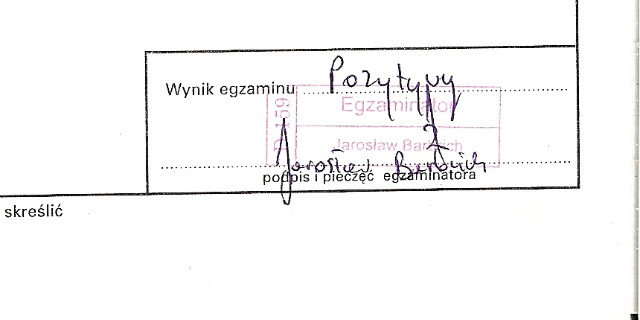 Wynik egzaminu Pozytywny
Egzaminator
D 159
Jarosław
Jarosław
podpis i pieczęć egzaminatora
skreślić